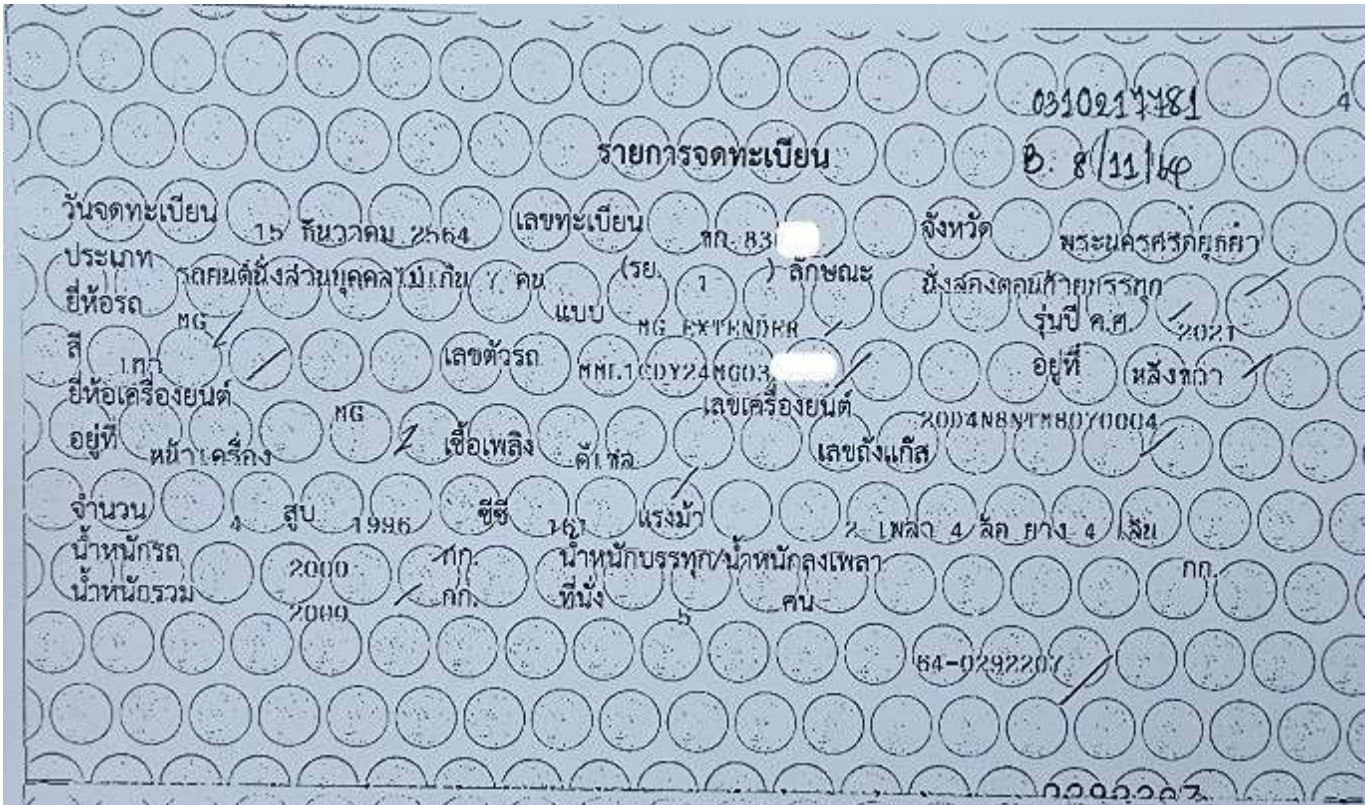 0310217781
4
รายการจดทะเบียน
B. 8/11/64
วันจดทะเบียน 15 ธันวาคม 2564 เลขทะเบียน 83 จังหวัด พระนครศรีอยุธยา
ประเภท รถยนต์นั่งส่วนบุคคลไม่เกิน 7 คน (รย. 1 ) ลักษณะ นั่งสองตอนท้ายบรรทุก
ยี่ห้อรถ MG แบบ MG EXTENDER รุ่นปี ค.ศ. 2021
สี เทา เลขตัวรถ อยู่ที่ หลังขวา
ยี่ห้อเครื่องยนต์ MG เลขเครื่องยนต์ 20D4N8NTM8070004
อยู่ที่ หน้าเครื่อง เชื้อเพลิง ดีเซล เลขถังแก๊ส
จำนวน 4 สูบ 1996 ซีซี 161 แรงม้า 2 เพลา 4 ล้อ ยาง 4 เส้น
น้ำหนักรถ 2000 กก. น้ำหนักบรรทุก/น้ำหนักลงเพลา กก.
น้ำหนักรวม 2000 กก. ที่นั่ง 5 คน
64-0292207